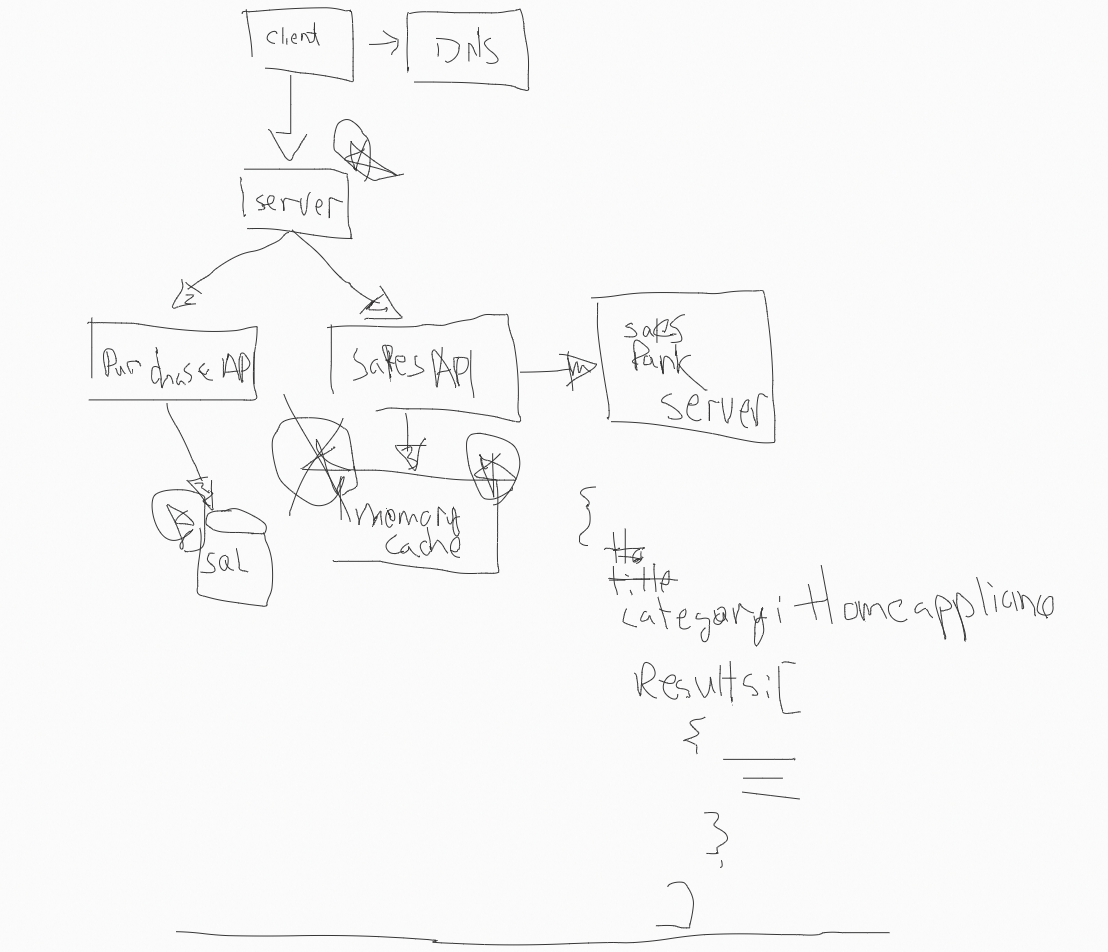 client
DNS
server
Purchase API
Sales API
sales
Rank
server
memory
cache
SQL
{
Ho
title
category: Homeappliance
Results: [
{
};
]